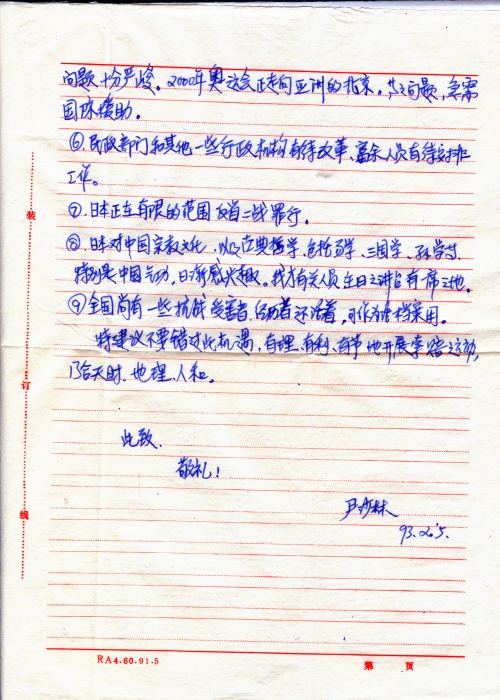 问题十分严峻。2000年奥运会正走向亚洲的北京。问题，急需
国际援助。
⑥民政部门和其他一些行政机构有待改革、富余人员有待安排
工作。
⑦日本正在有限的范围反省二战罪行。
⑧日本对中国宗教文化，以及古典哲学，包括易学、三国学、孙学
特别是中国气功，日渐感兴趣。我方有关人员在日之讲台有一席之地。
⑨全国尚有一些抗战受害者、经历者还活着，可作为采用。
特建议不要错过此机遇，有理、有利、有节地开展索偿运动，
乃合天时、地理、人和。
此致
敬礼！
93.2.5.
装
订
线
RA4·60·91·5
第 页